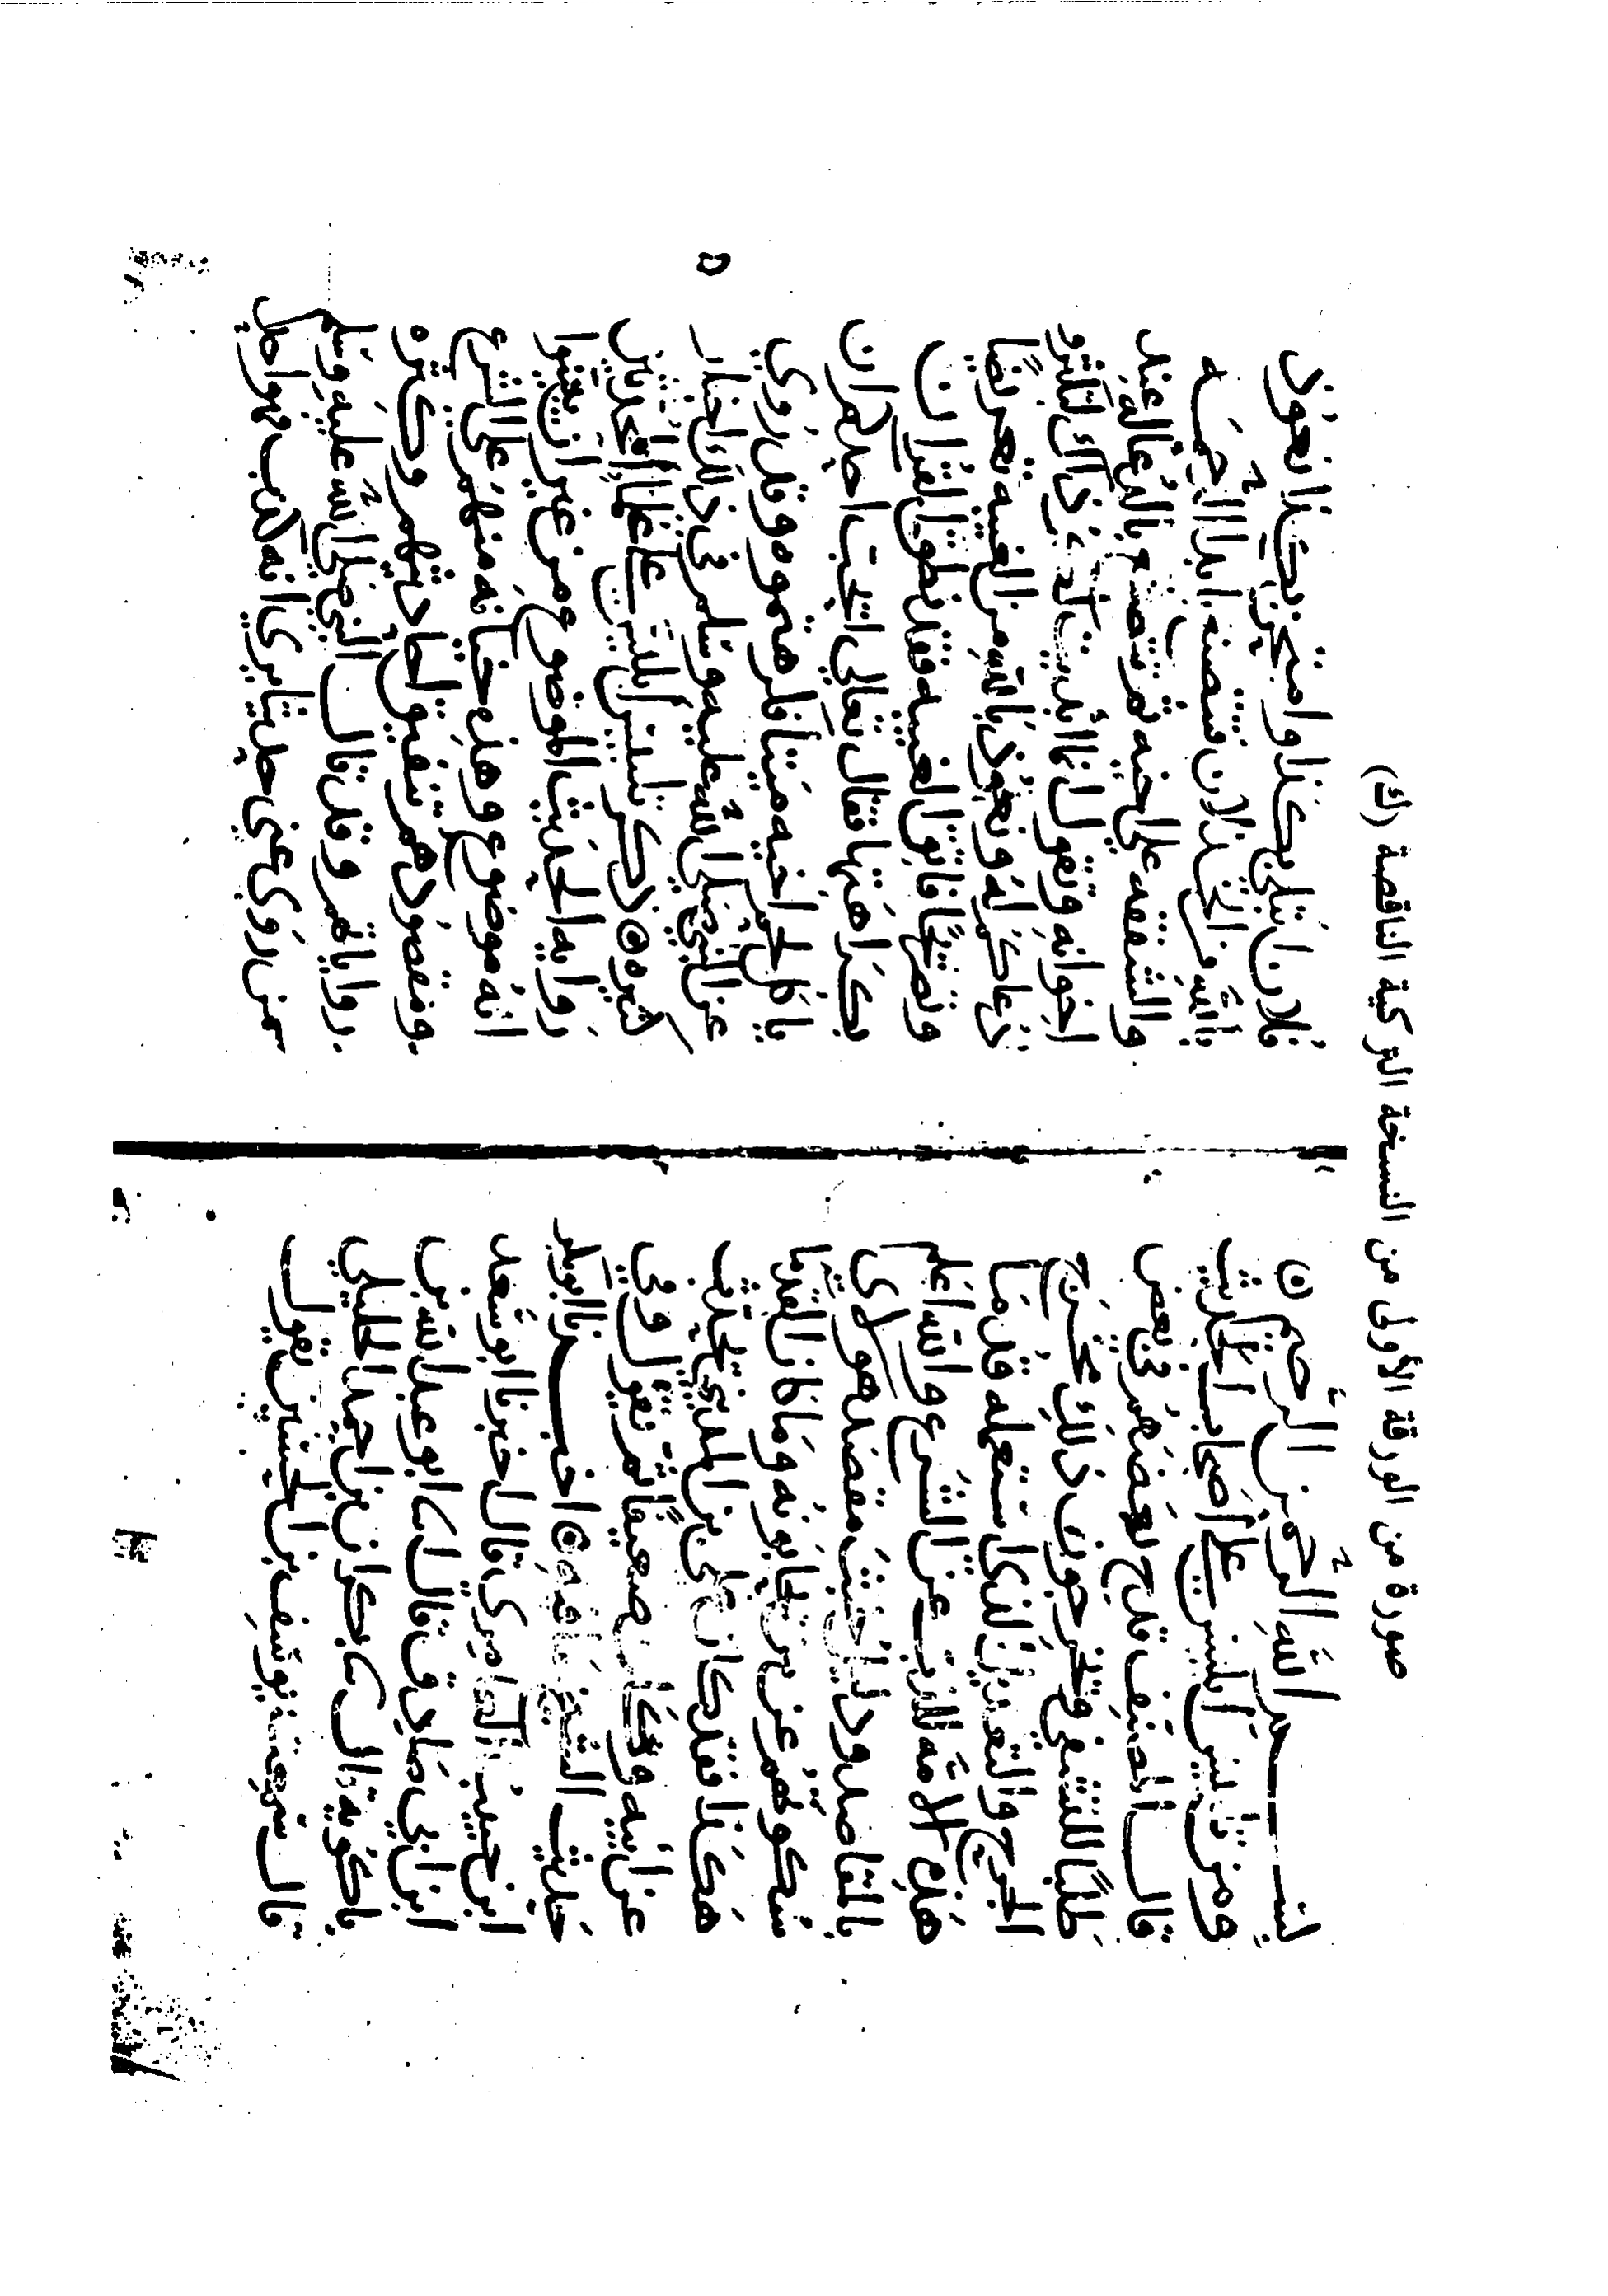 صورة من الورقة الأولى من النسخة التركية الناقصة (ك)
بسم الله الرحمن الرحيم
ومن تلبيس ابليس على اصحاب الحديث
قال المصنف قدح بعضهم في بعض
طلبا للتشفي ويخرجون ذلك مخرج
الجرح والتعديل الذي استعمله قدما
هذه الامة للذب عن الشرع والله اعلم
بالمقاصد ودليل خبث مقصد هولاى
سكوتهم عن من يحابونه وما كان القدما
هكذا فقد كان علي بن المديني يحدث
عن ابيه وكان ضعيفا ثم يقول وفي
حديث الشيخ ما فيه اخبرنا ابو بكر
ابن حبيب العامري قال اخبرنا ابو سعد
ابن ابي صادق قال انا ابو عبد الله بن
باكويه قال ثنا بكران بن احمد الجيلي
قال سمعت يوسف بن الحسين يقول
٥
فلان ابتلي بكذا وامتحن بكذا نعوذ
بالله من الخذلان ابدا الرحمة
والشفقة على اخيه ثم تتصنع بالدعا له عند
اخوانه وتقول انما ابديت لكم ذاك لتكثرو
دعاكم له ونعوذ بالله من الغيبة تعريضا
وتصريحا فاتق الغيبة فقد نطق القران
بكراهتها فقال تعالى ايحب احدكم ان
ياكل لحم اخيه ميتا فكرهتموه وقد روي
عن النبي صلى الله عليه وسلم في ذلك اخبار
كثيرة ذكر تلبيس ابليس على علما المحدثين
رواية الحديث الموضوع من غير ان يبينوا
انه موضوع وهذه خيانة منهم على الشرع
ومقصودهم تنفيق احاديثهم وكثرة
رواياتهم وقد قال النبي صلى الله عليه وسلم
من روى عني حديثا يرى انه كذب فهو احد